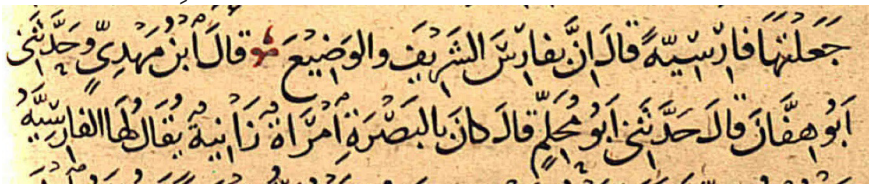 جَعَلْتَهَا فَارِسِيَّةً قَالَ اِنَّ بِفَارِسَ الشَرِيفَ والوَضِيْعَ قَالَ اَبْنُ مَهْدِىٍّ وَحَدَّثَنِى
اَبُو هِفَّانَ قَالَ حَدَّثَنِى اَبُو مُحَلِّمٍ قَالَ كَانَ بِالبَصْرَةِ اَمْرَاَةٌ زَانِيَةٌ يُقَالُ لَهَا الفَارِسِيَّةُ